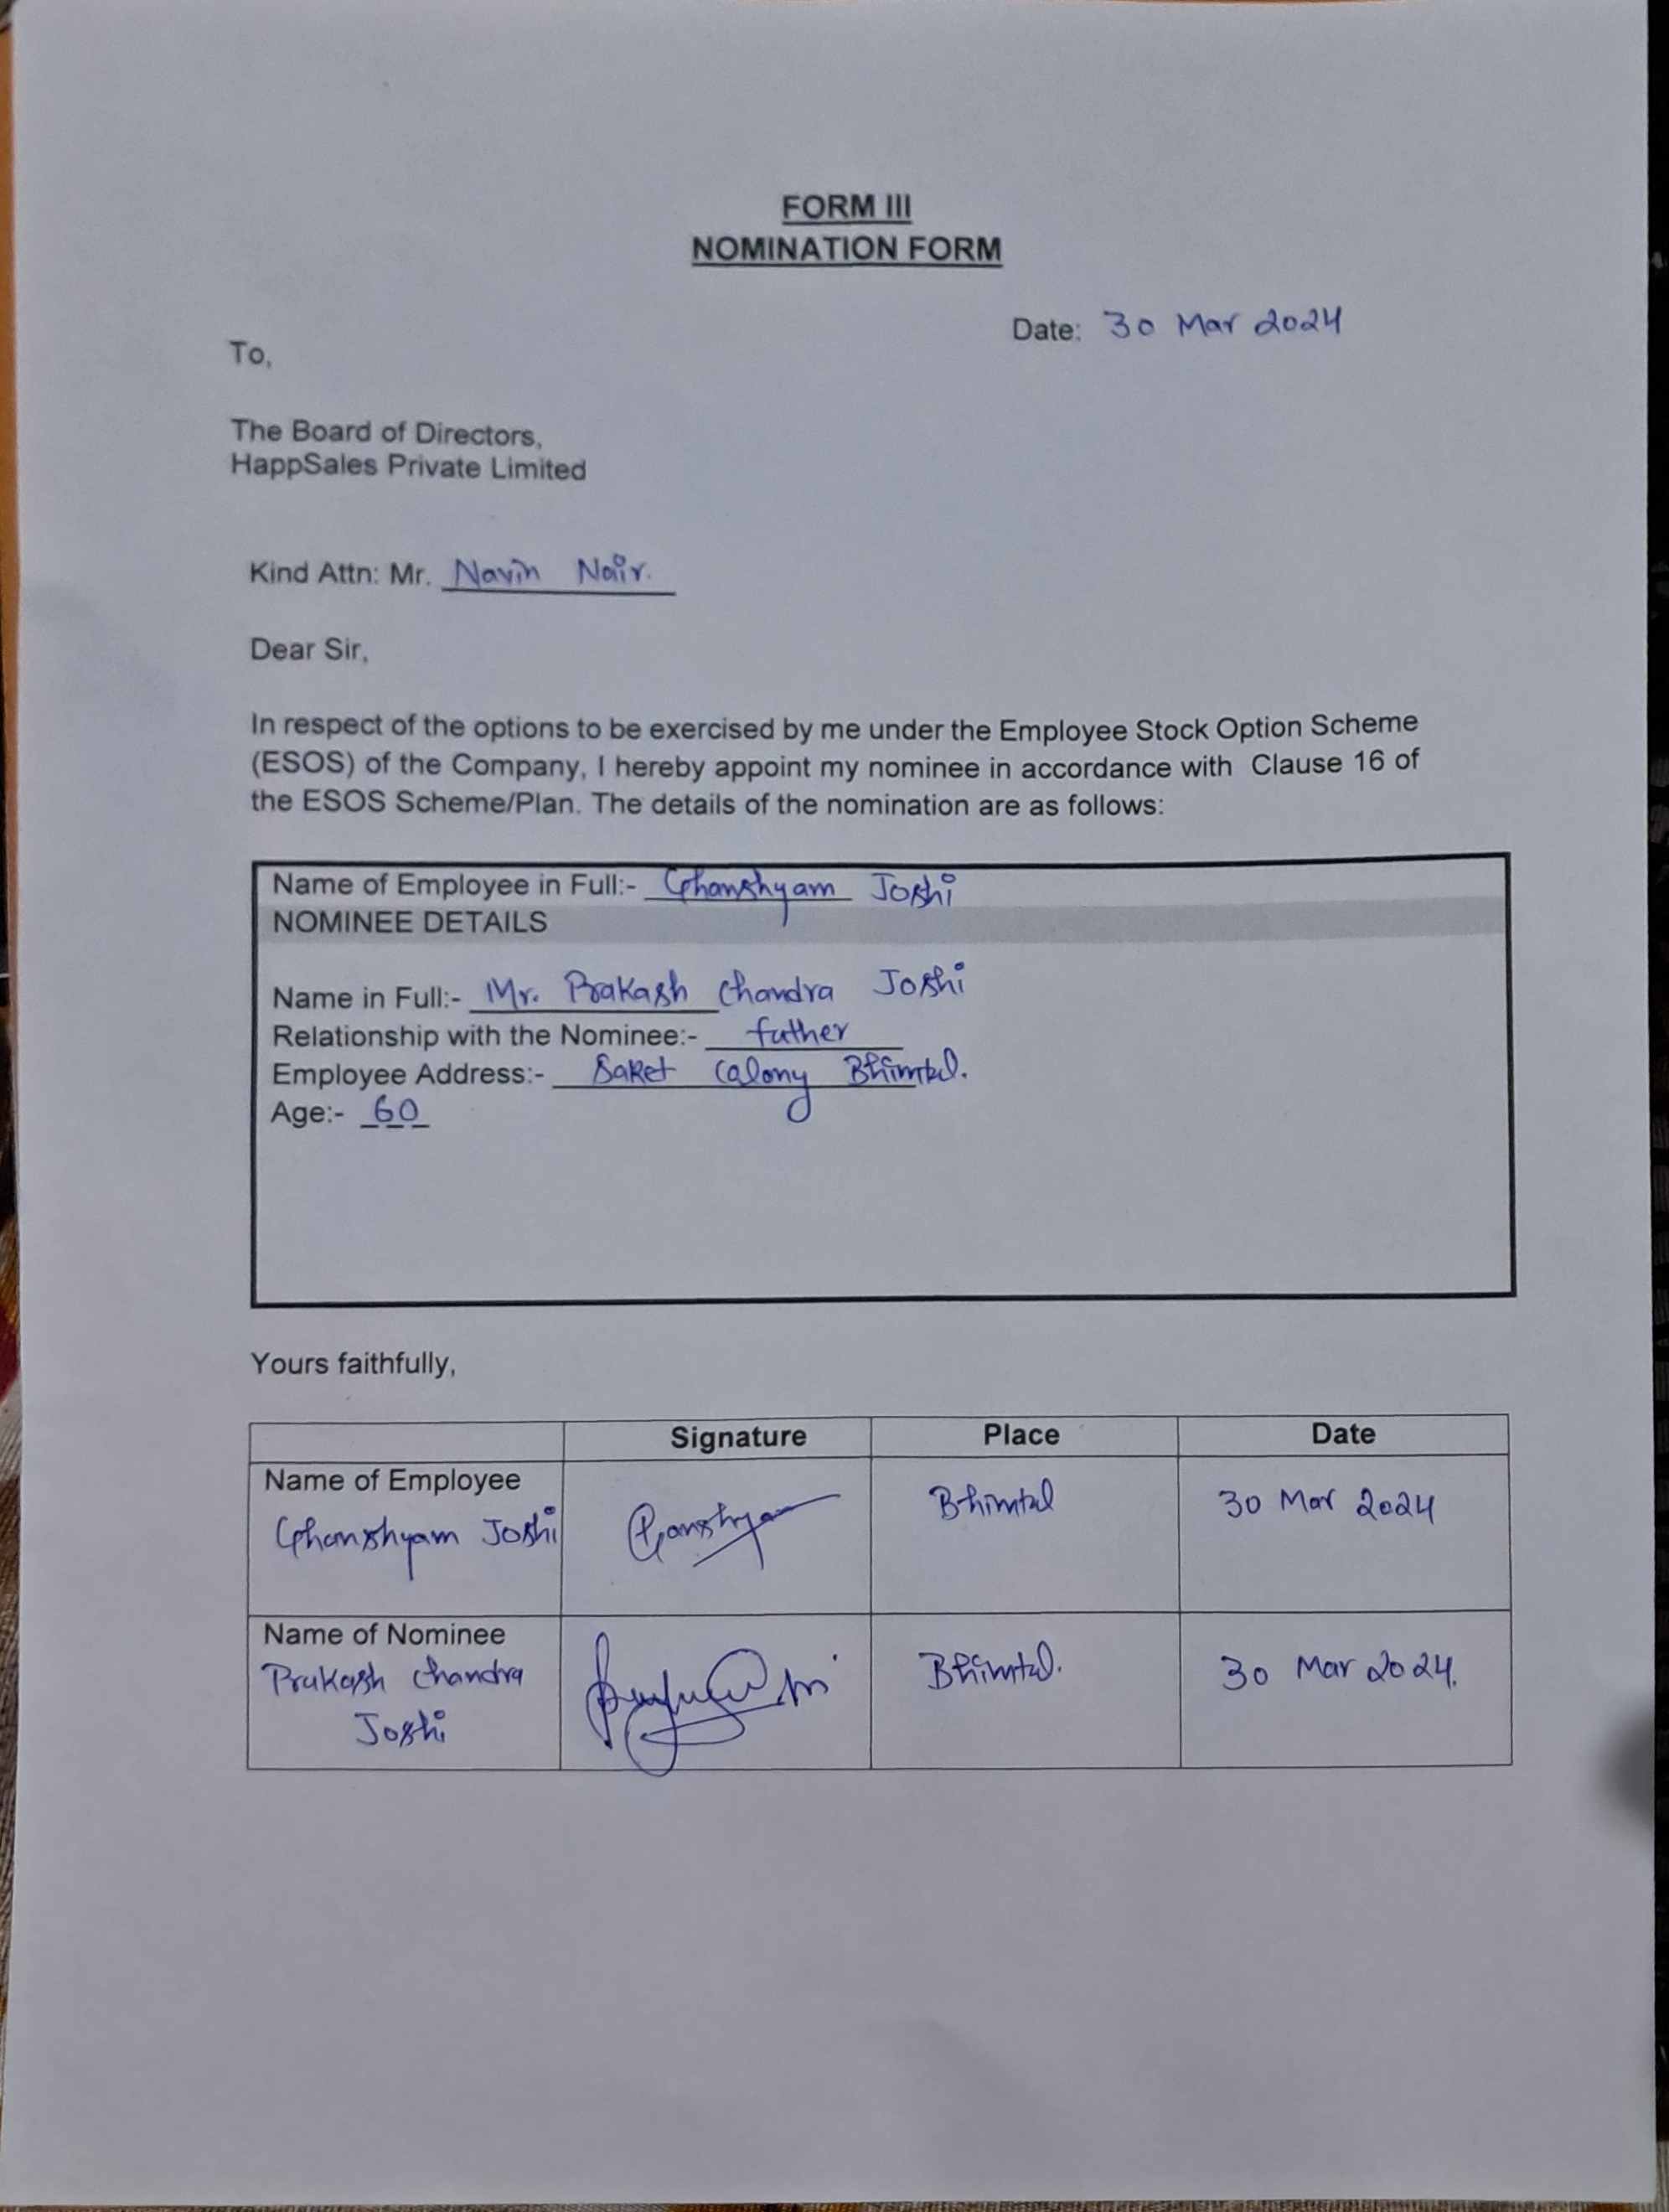 FORM III
NOMINATION FORM
Date: 30 Mar 2024
To,
The Board of Directors,
HappSales Private Limited
Kind Attn: Mr. Navin Nair.
Dear Sir,
In respect of the options to be exercised by me under the Employee Stock Option Scheme
(ESOS) of the Company, I hereby appoint my nominee in accordance with Clause 16 of
the ESOS Scheme/Plan. The details of the nomination are as follows:
Name of Employee in Full:- Ghanshyam Joshi
NOMINEE DETAILS
Name in Full:- Mr. Prakash Chandra Joshi
Relationship with the Nominee:- father
Employee Address:- Saket Colony Bhimtal.
Age:- 60
Yours faithfully,
Signature Place Date
Name of Employee
Ghanshyam Joshi Ganshyam Bhimtal 30 Mar 2024
Name of Nominee
Prakash Chandra Bhimtal. 30 Mar 2024.
Joshi